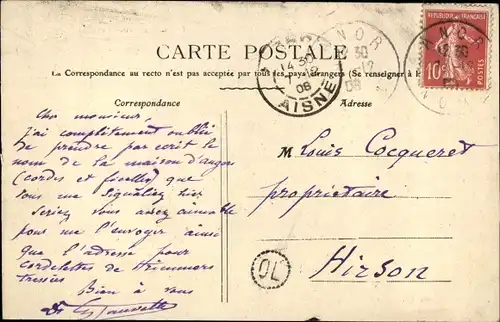 CARTE POSTALE
La Correspondance au recto n'est pas acceptée par tous les pays étrangers (Se renseigner à la
Correspondance
Adresse
Cher monsieur,
j'ai complètement oublié
de prendre par écrit le
nom de la maison d'angers
(cordes et ficelles) que
vous me signaliez hier
Seriez vous assez aimable
pour me l'envoyer ainsi
que l'adresse pour
cordelettes de
tressées
Bien à vous
M Louis Cocqueret
propriétaire
Hirson
OL
14 30
08
AISNE
ANOR
12 30
08
ANOR
12 30
RÉPUBLIQUE FRANÇAISE
10